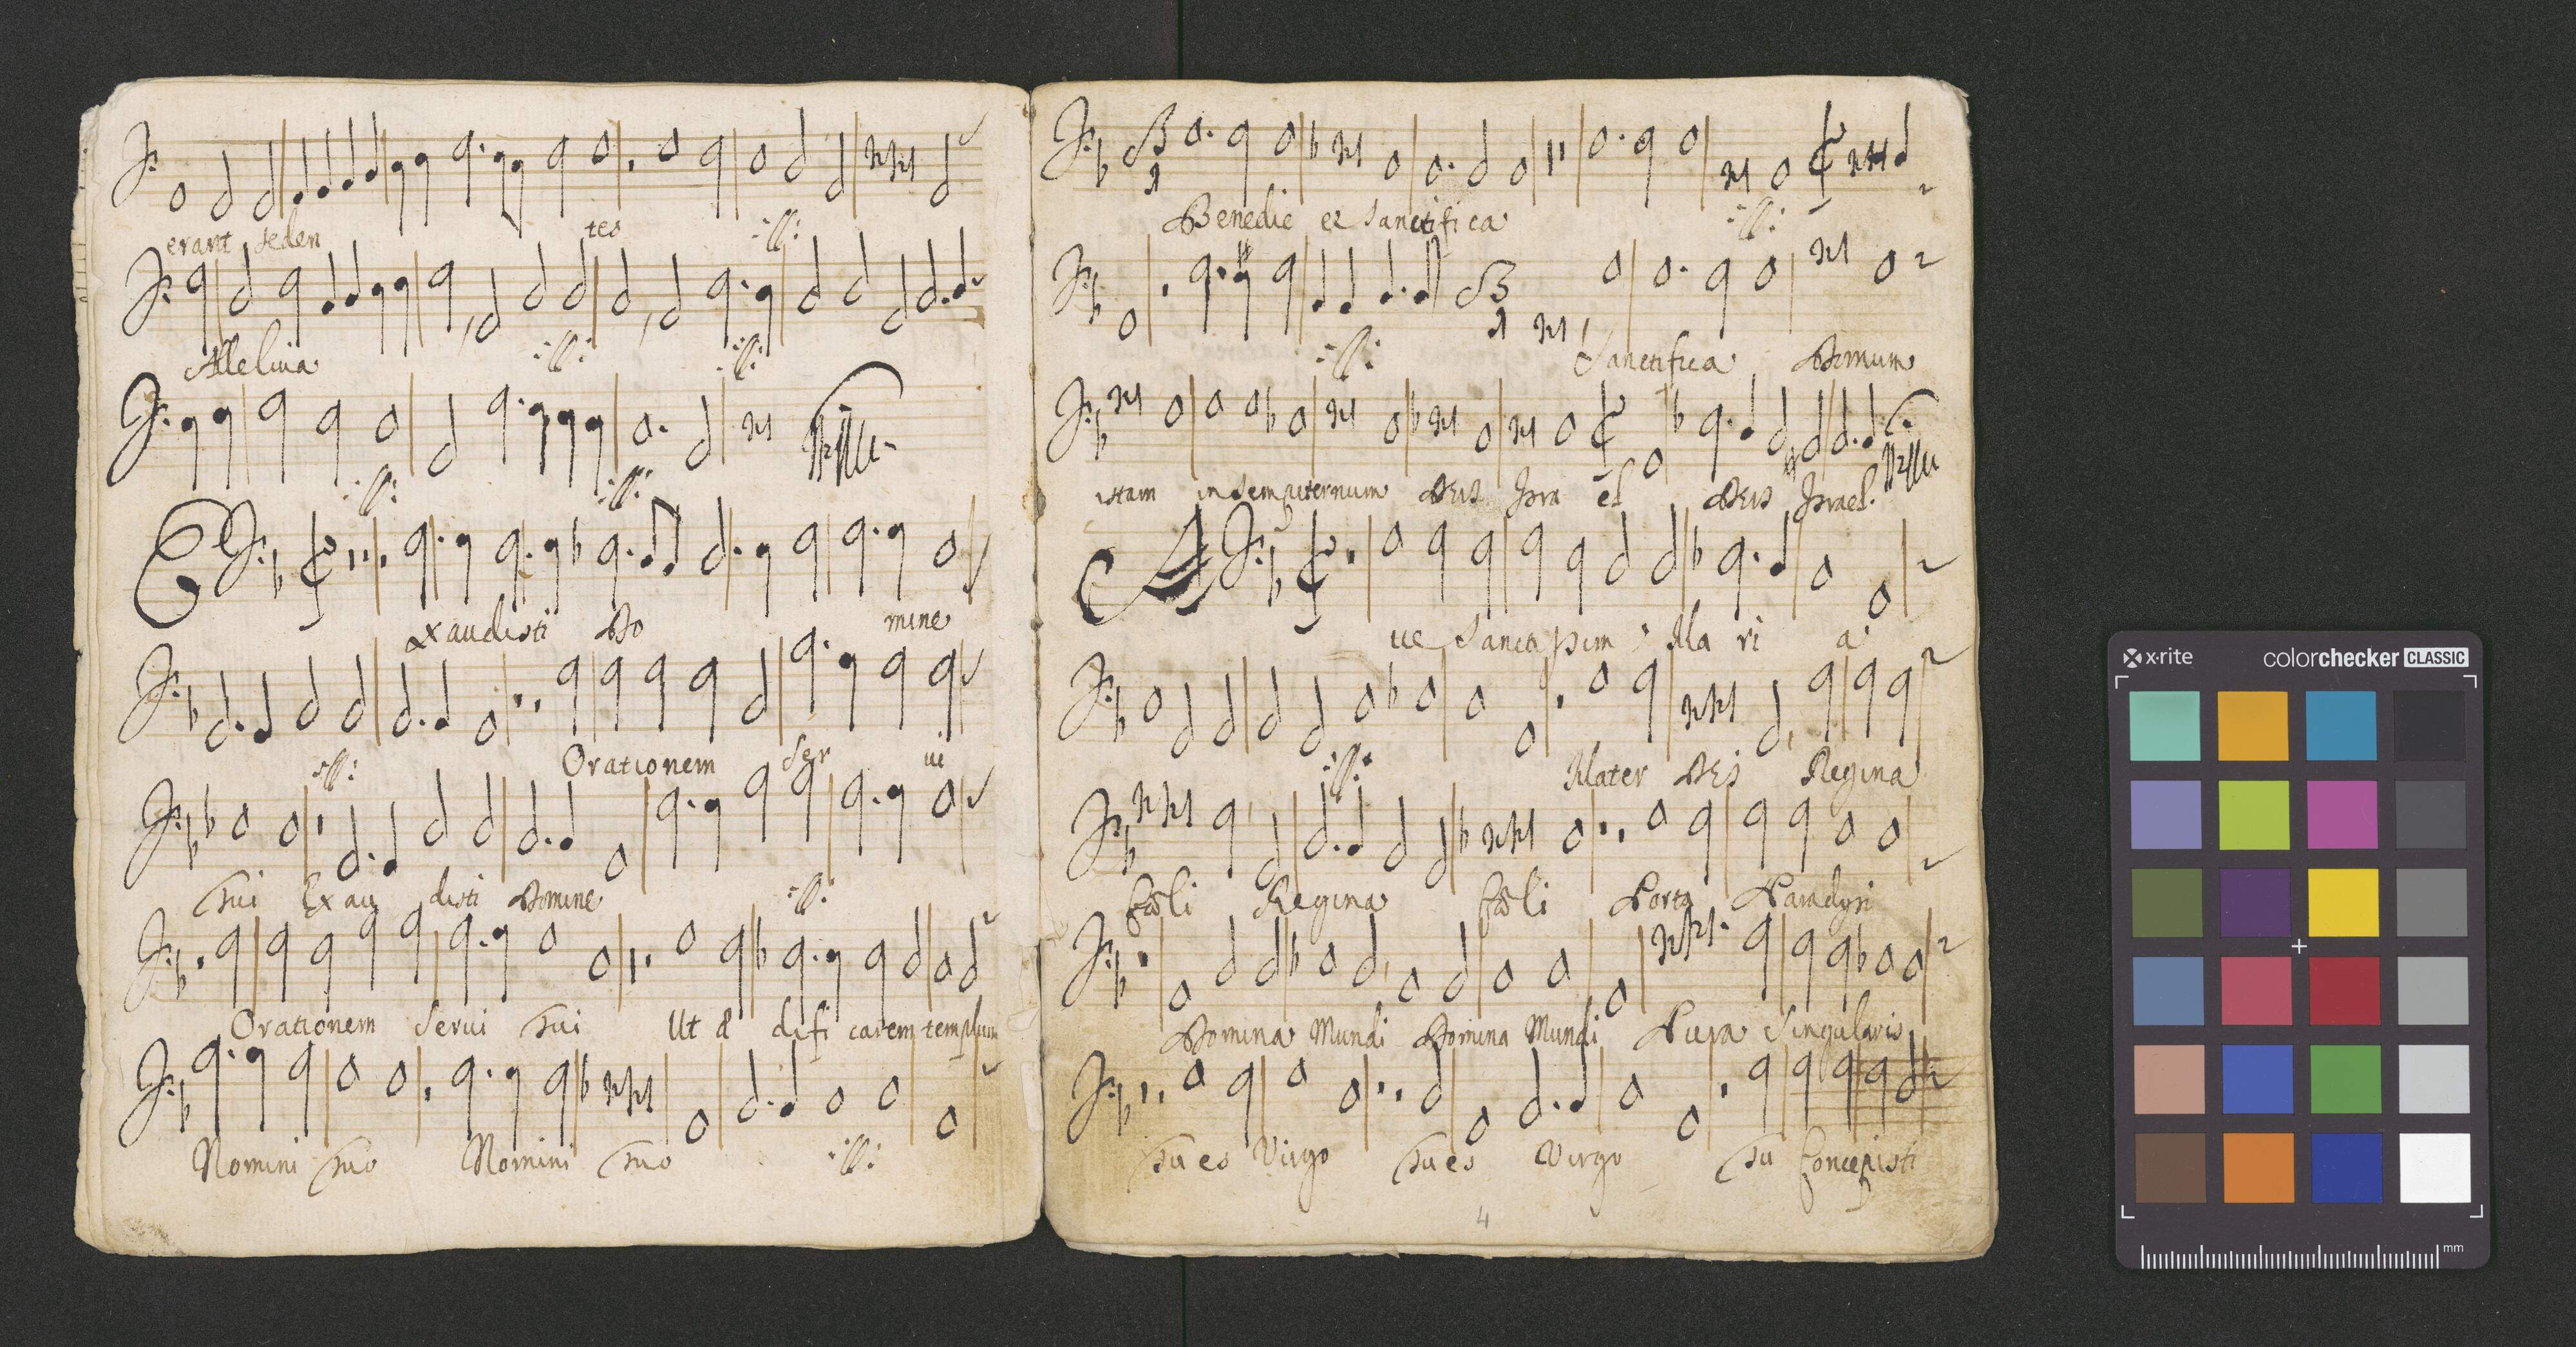 erant seden tes :||:
Alleluia :||: :||:
:||: :||:
Exaudisti Do mine
:||: Orationem Ser ui
Tui Exau disti Domine :||:
Orationem Serui Tui Ut æ difi carem templum
Nomini Tuo Nomini Tuo :||:
3/1
Benedic et Sanctifica :||:
3/1
:||: Sanctifica Domum
istam in sempiternum Deus Isra el Deus Israel.
Aue Sanctissim: Ma ri a
:||: Mater Dei Regina
Cœli Regina Cœli Porta Paradysi
Domina Mundi Domina Mundi Pura Singularis
Tu es Virgo Tu es Virgo Tu Concepisti
4
x-rite colorchecker CLASSIC
mm